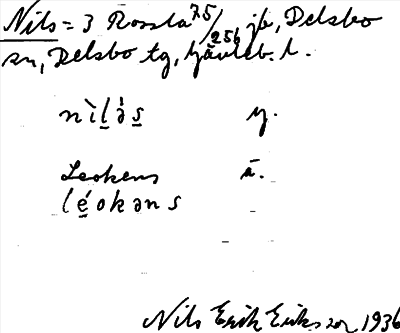 Nils = 3 Rossla 7.5/256 jb, Delsbo
sn, Delsbo tg, Gävleb. l.
nìlə̀s y.
Leokens ä.
léokəns
Nils Erik Eriksson 1936